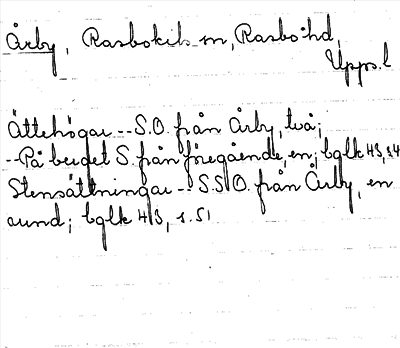 Årby, Rasbokils sn, Rasbo hd,
Upps. l
Ättehögar -- S.O. från Årby, två;
-- På berget S. från föregående, en; bglk 43, s 4
Stensättningar -- S.S.O. från Årby, en
rund; bglk 43, s. 51